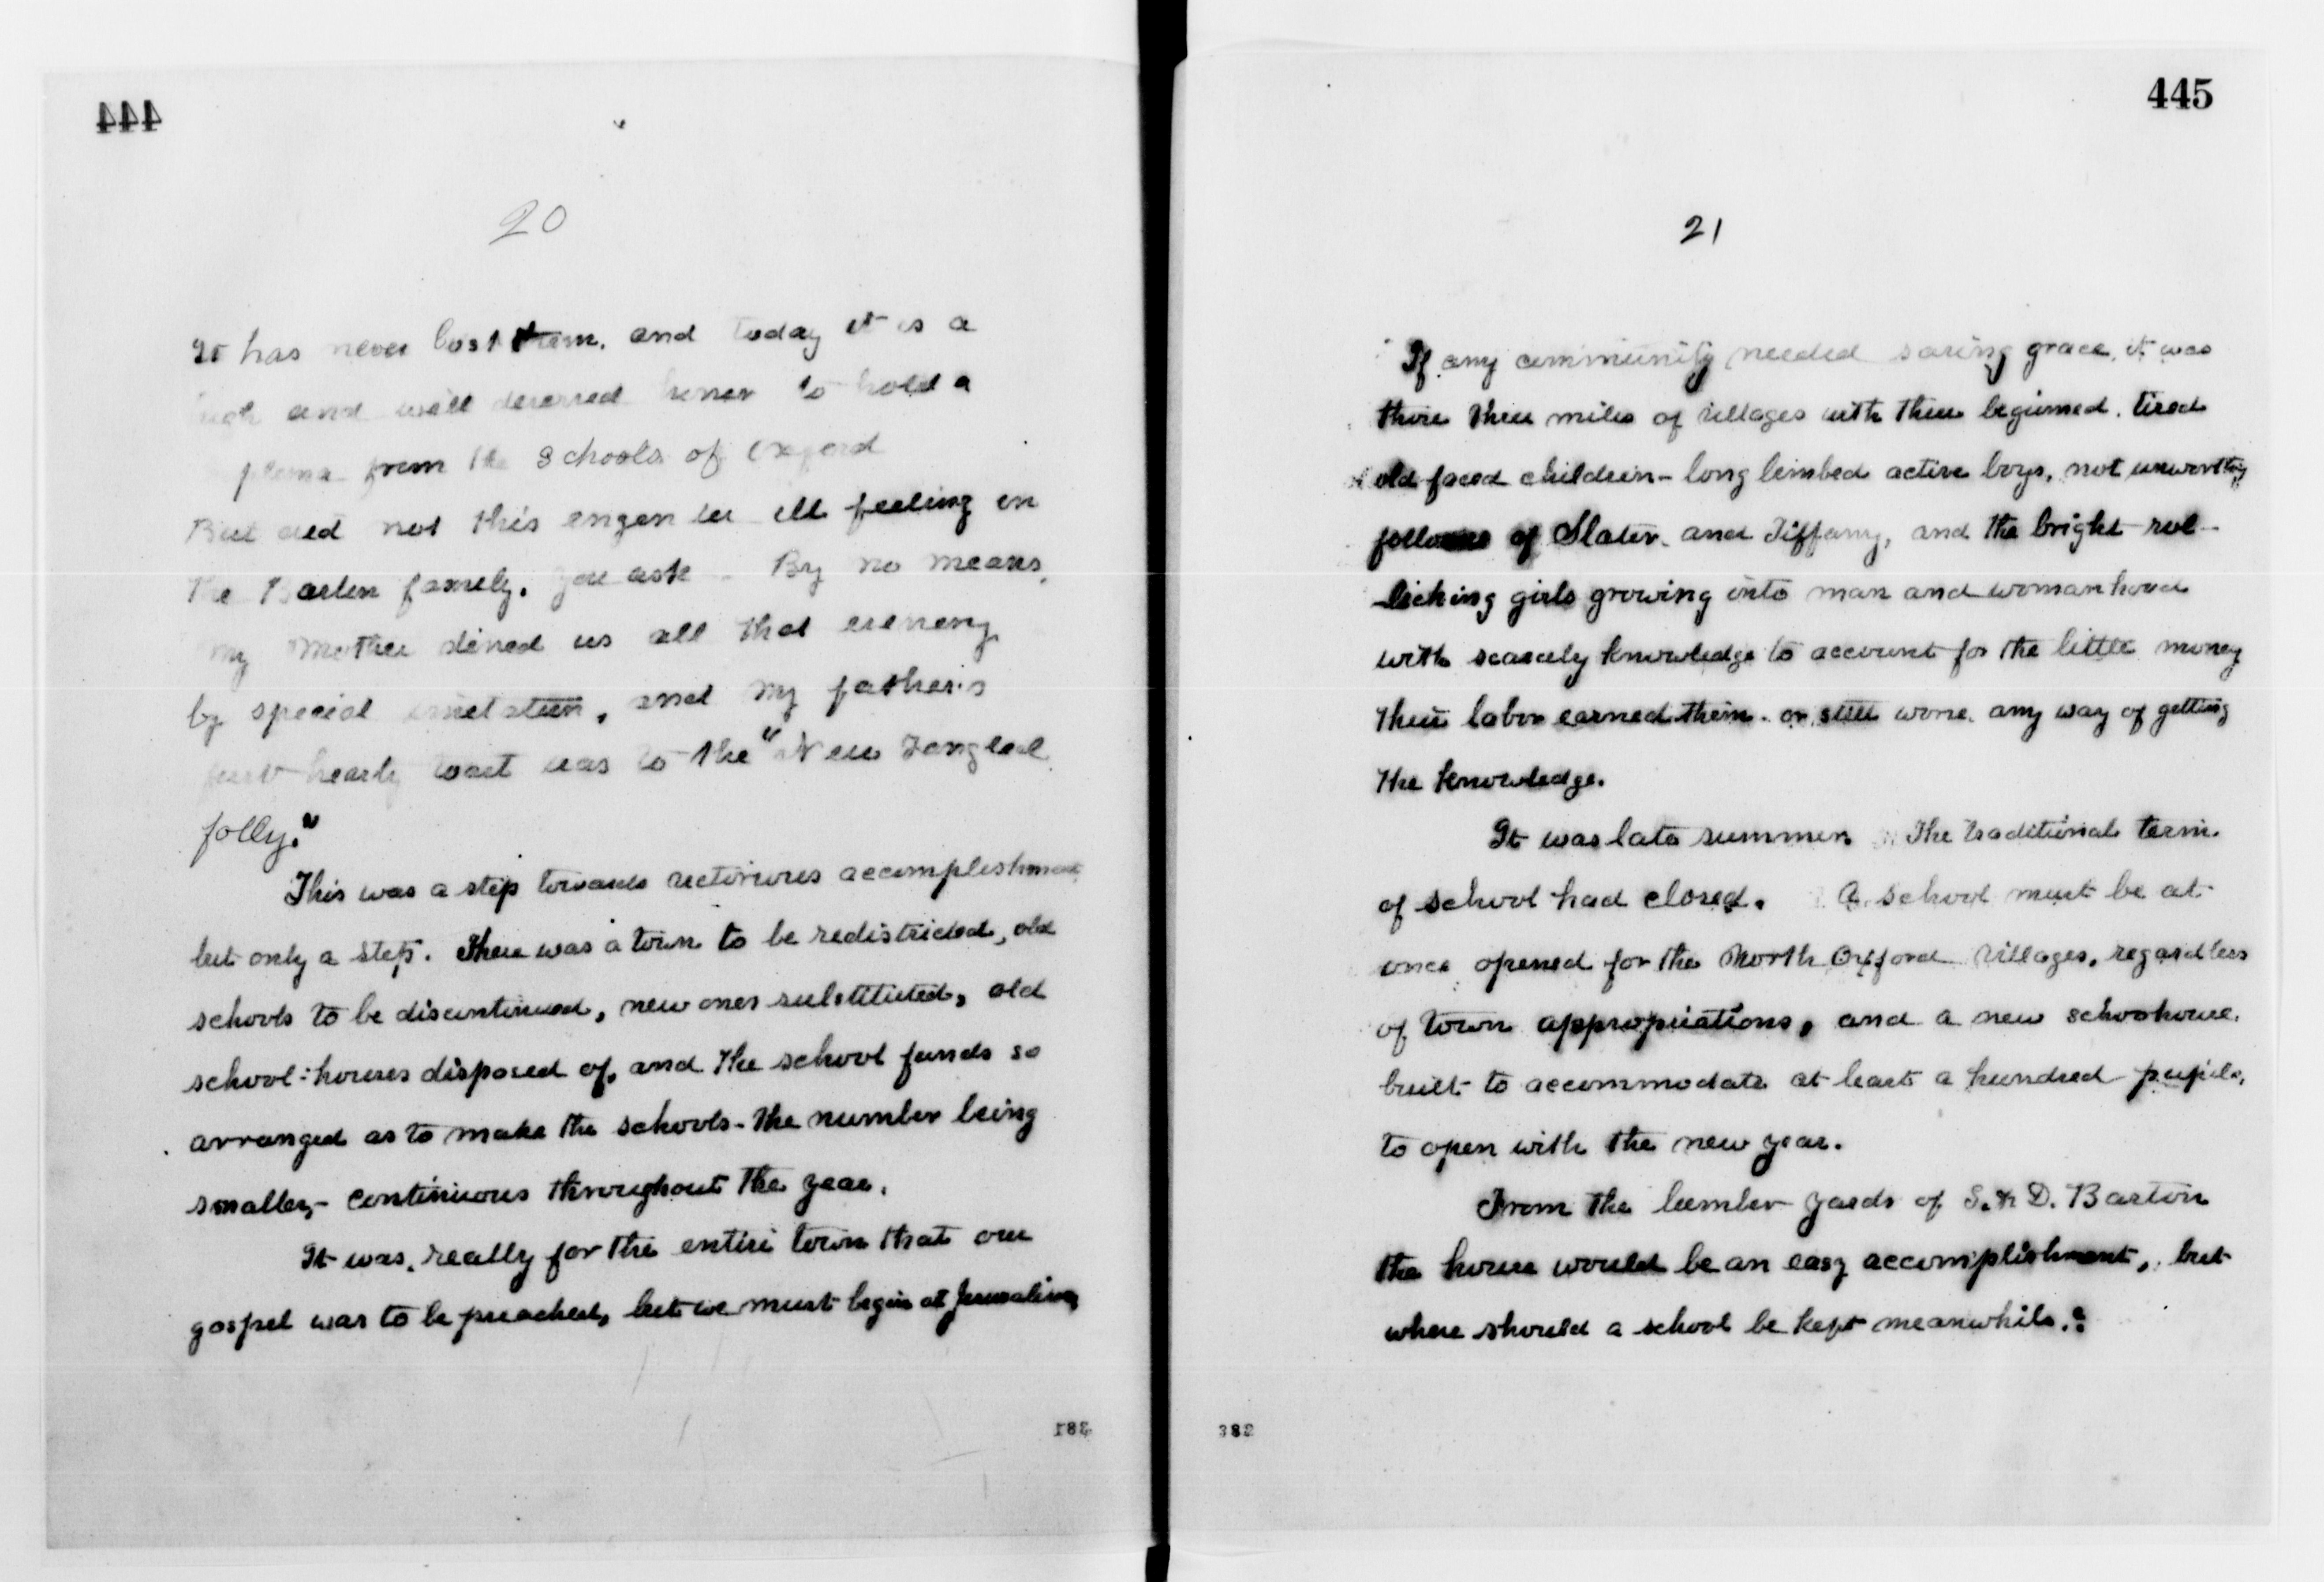 444
20
It has never lost them. and today it is a
and well deserved honor to hold a
from the schools of Oxford
But did not this engender ill feeling in
the Barton family. you ask. By no means,
my Mother dined us all that evening
by special invitation, and my father's
first hearty toast was to the "New Fangled
folly."
This was a step towards victorious accomplishment
but only a step. There was a town to be redistricted, old
schools to be discontinued, new ones substituted, old
school-houses disposed of, and the school funds so
arranged as to make the schools - the number being
smaller, - continuous throughout the year.
It was, really for the entire town that our
gospel was to be preached, but we must begin at Jerusalem,
381
445
21
If any community needed saving grace, it was
those three miles of villages with their begrimed, tired
old faced children - long limbed active boys, not unworthy
followers of Slater, and Tiffany, and the bright rol-
-licking girls growing into man and womanhood
with scarcely knowledge to account for the little money
their labor earned them. or still worse, any way of getting
the knowledge.
It was late summer. The traditional term
of school had closed. A school must be at
once opened for the North Oxford Villages, regardless
of town appropriations, and a new schoohouse,
built to accommodate at least a hundred pupils,
to open with the new year.
From the lumber yards of S. & D. Barton
the house would be an easy accomplishment, but
where should a school be kept meanwhile?
382